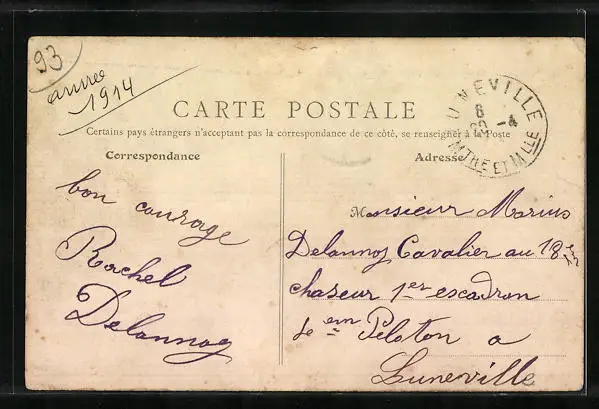 93
année
1914
CARTE POSTALE
Certains pays étrangers n'acceptant pas la correspondance de ce côté, se renseigner à la Poste
Correspondance
Adresse
LUNEVILLE
8
20 -4
MTHE ET MLLE
bon courage
Rachel
Delannoy
Monsieur Marius
Delannoy Cavalier au 18em
chaseur 1er escadron
4em Peloton a
Luneville